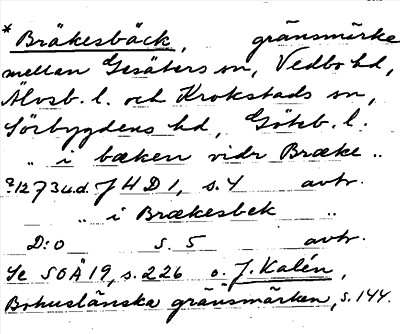 * Bräkesbäck, gränsmärke
mellan Gesäters sn, Vedbo hd,
Älvsb. l. och Krokstads sn,
Sörbygdens hd, Götb. l.
„ i bæken vidr Bræke „
?1273 u.d. J H D 1, s. 4 avtr.
„ i Brækesbek „
D:o s. 5 avtr.
Se SOÄ 19, s. 226 o. J. Kalén,
Bohuslänska gränsmärken, s. 144.